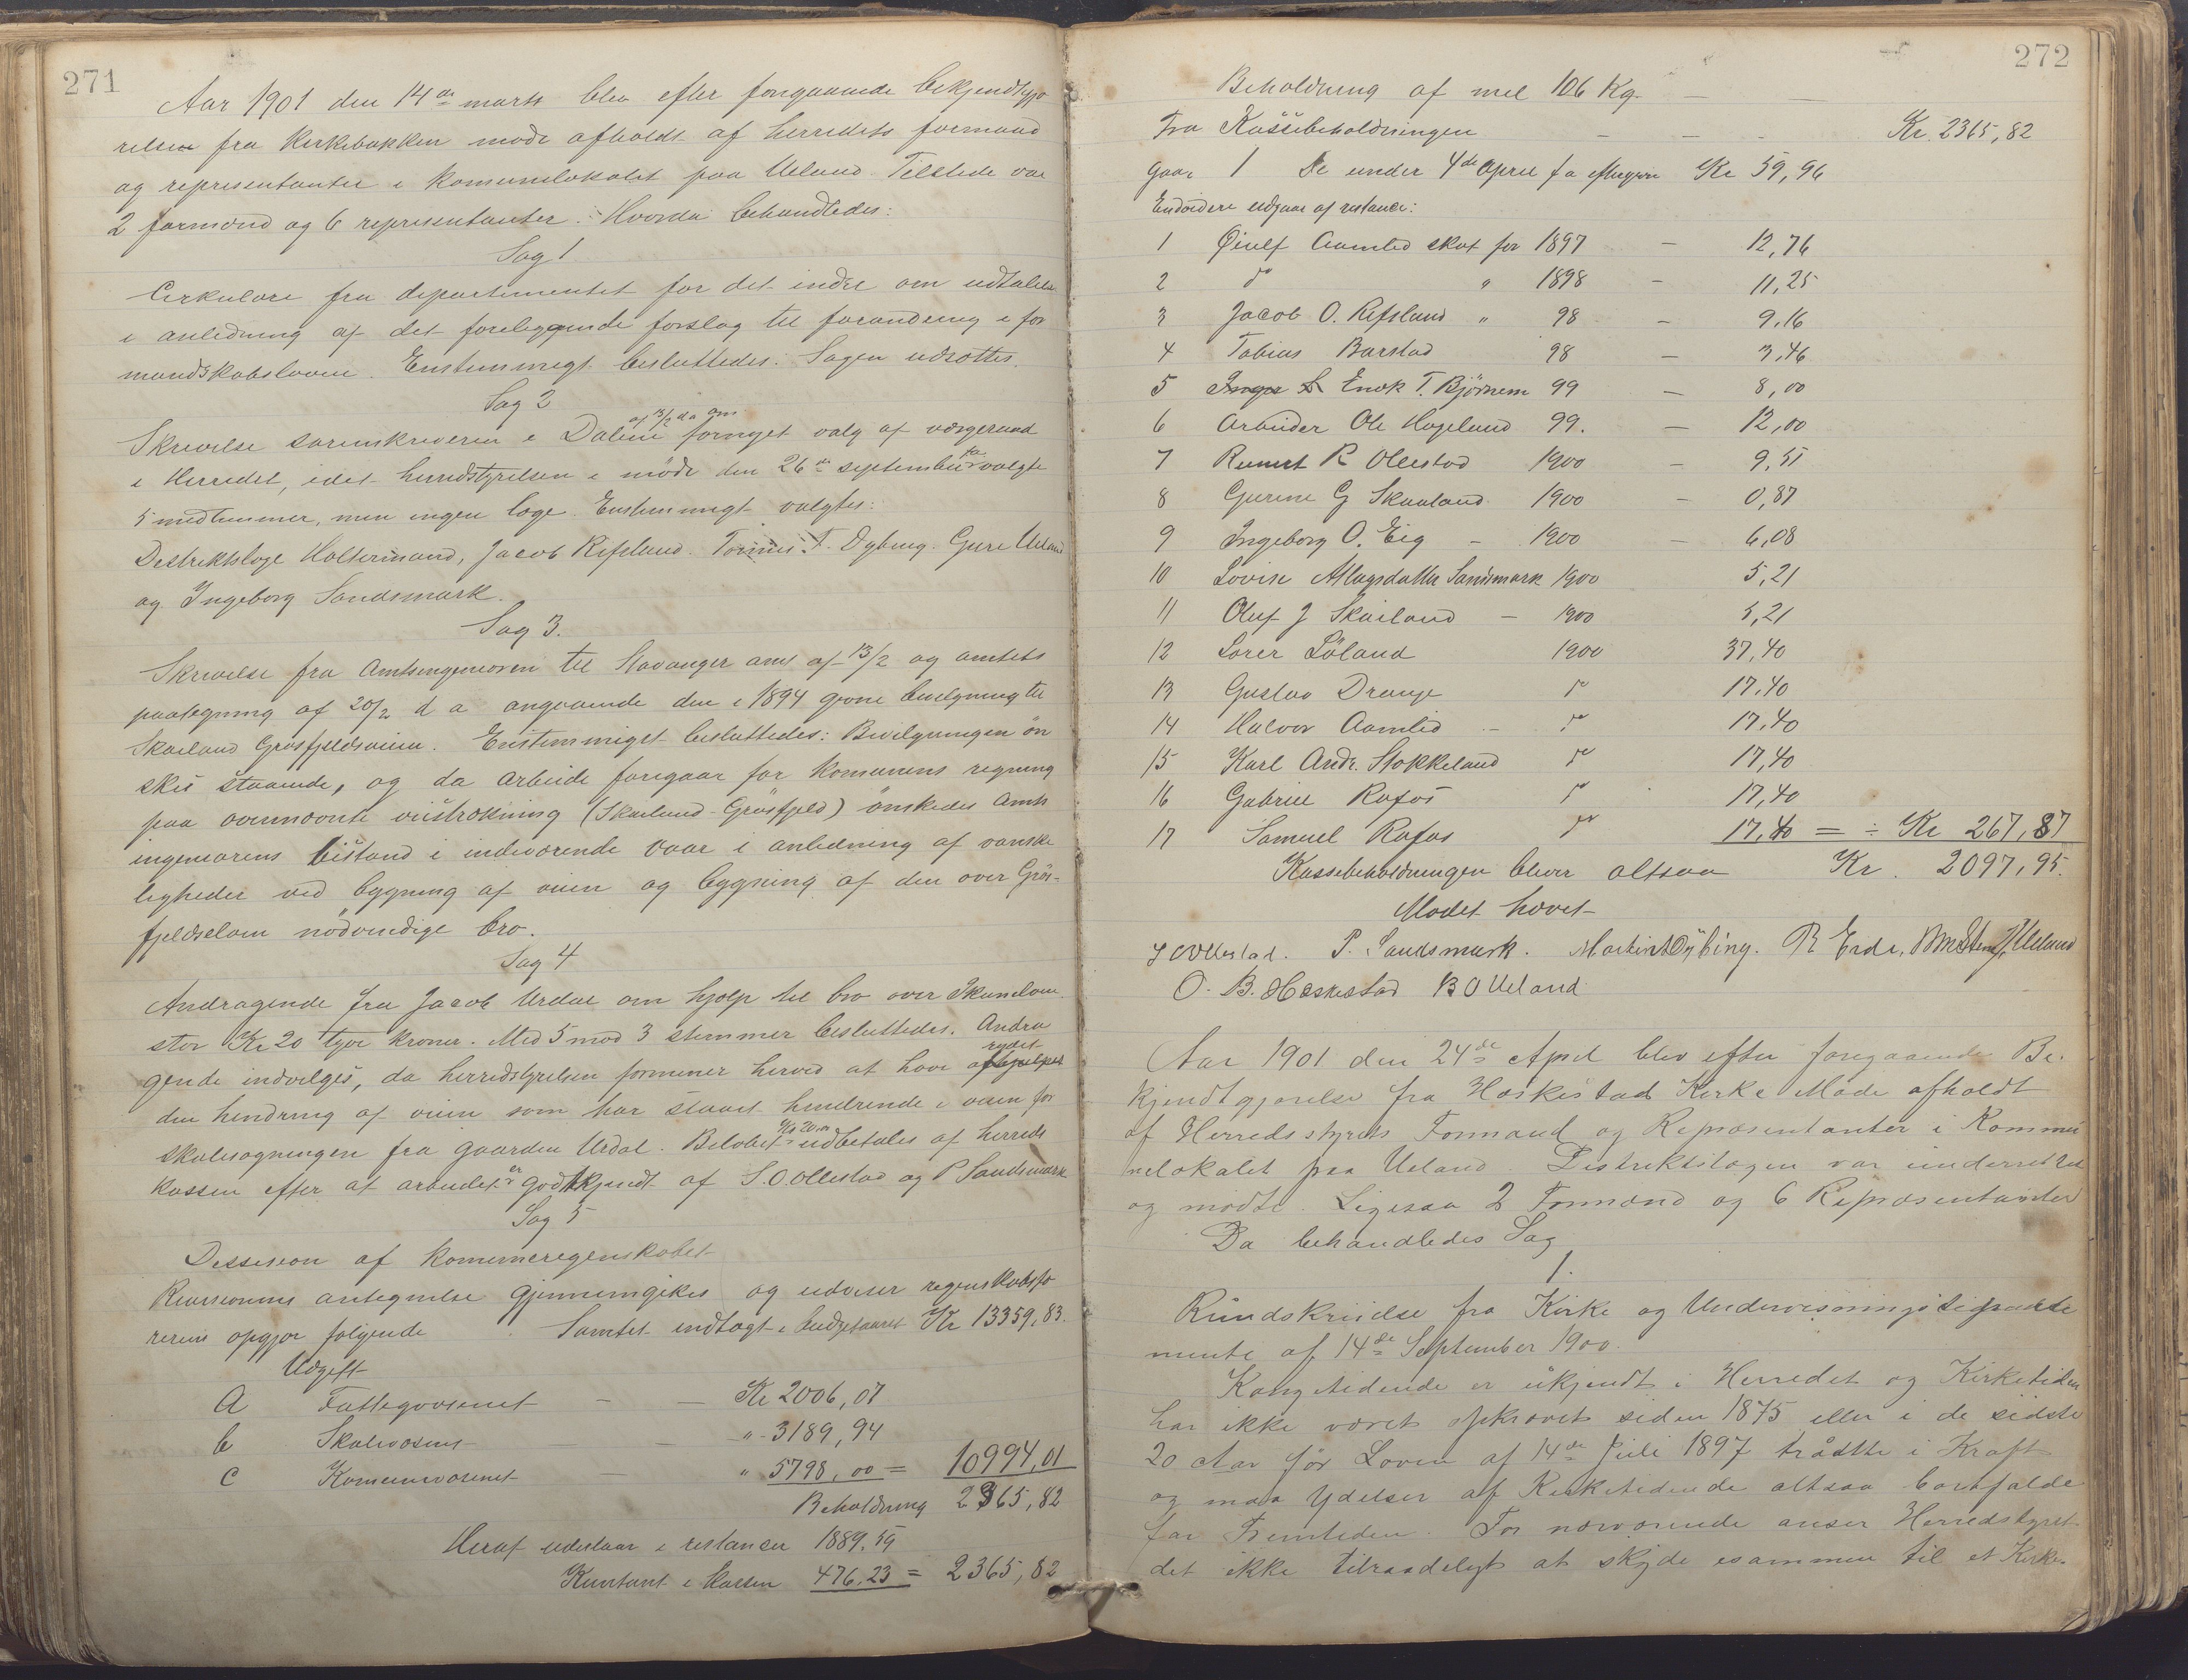 271
Aar 1901 den 14de marts blev efter forgaaende bekjendtgjø
relse fra kirkebakken møde afholdt af herredets formænd
og representanter i komunelokalet paa Ueland. Tilstede var
2 formænd og 6 representanter. Hvorda behandledes:
Sag 1
Cirkulære fra departementet for det indre om udtalelse
i anledning af det foreliggende forslag til forandring i for
mandskabsloven. Enstemmigt besluttedes: Sagen udsættes.
Sag 2
af 13/2 d a om
Skrivelse sorenskriveren i Dalene fornyet valg af værgeraad
i Herredet, idet herredstyrelsen i møde den 26de september f a valgte
5 medlemmer, men ingen læge. Enstemmigt valgtes:
Destriktslæge Holtermand, Jacob Refsland. Tønnes T. Dybing. Guri Ueland
og Ingeborg Sandsmark.
Sag 3.
Skrivelse fra Amtsingeniøren til Stavanger amt af 13/2 og amtets
paategning af 20/2 d a angaaende den i 1894 givne bevilgning til
Skailand Grøsfjeldsveien. Enstemmiget besluttedes: Bevilgningen øn
skes staaende, og da arbeide foregaar for komunens regning
paa ovennævnte veistrækning (Skailand-Grøsfjeld) ønskedes Amts
ingeniørens bistand i indeværende vaar i anledning af vanske
ligheder ved bygning af veien og bygning af den over Grøs-
fjeldselven nødvendige bro.
Sag 4
Andragende fra Jacob Urdal om hjælp til bro over
stor Kr 20 tyve kroner. Med 5 mod 3 stemmer besluttedes. Andra
gende indvilges, da herredstyrelsen formener herved at have afhjelpet ryddet
den hindring af veien som har staaet hindrende i veien for
skolesøgningen fra gaarden Urdal. Beløbet Kr 20,00 udbetales af herreds
kassen efter at arbeidet er godtkjendt af S.O. Ollestad og P Sandsmark
Sag 5
Dessision af komuneregenskabet
Revisionens antegnelse gjennemgikes og udviser regenskabsfø
rerens opgjør følgende Samlet indtægt i budgetaaret Kr 13359,83.
Udgift
A Fattigvæsenet — — Kr 2006,07
b Skolevæsenet — — " 3189,94
C Komunevæsenet — " 5798,00 = 10994,01
Beholdning 2365,82
Heraf udestaar i restancer 1889,59
Kontant i kassen 476,23 = 2365,82
272
Beholdning af mel 106 Kg. — —
Fra Kassebeholdningen — — - Kr. 2365,82
gaar 1 De under 4de april f a eftergivne Kr 59,96
Endvidere udgaar af restance:
1 Øiulf Aamlid skat for 1897 — 12,76
2 do " 1898 — 11,25
3 Jacob O. Refsland " 98 — 9,16
4 Tobias Barstad 98 — 3,46
5 Enok T. Bjørnem 99 — 8,00
6 Arbeider Ole Hageland 99. — 12,00
7 Reinert R Ollestad 1900 — 9,51
8 Gurine G Skaaland 1900 — 0,87
9 Ingeborg O. Eig — 1900 — 6,08
10 Lovise Aslagsdatter Sandsmark 1900 5,21
11 Oluf J Skailand — 1900 5,21
12 Sører Løland 1900 37,40
13 Gustav Drange do 17,40
14 Halvor Aamlid — do 17,40
15 Karl Andr. Stokkeland do 17,40
16 Gabriel Rafos do 17,40
17 Samuel Rafos do 17,40 = ÷ Kr 267,87
Kassebeholdningen bliver altsaa Kr. 2097,95.
Mødet hævet
S O Ollestad. P. Sandsmark. Martin T Dybing. R Eide, Ueland
O. B. Hæskestad B O Ueland
Aar 1901 den 24de April blev efter foregaaende Be-
kjendtgjørelse fra Hæskestad Kirke Møde afholdt
af Herredsstyrets Formænd og Repræsentanter i Kommu
nelokalet paa Ueland. Distriktslægen var underrettet
og mødte. Ligesaa 2 Formænd og 6 Repræsentanter
Da behandledes Sag
1.
Rundskrivelse fra Kirke og Undervisningsdeparte
mente af 14de September 1900.
Kongetidende er ukjendt i Herredet og Kirketiden
har ikke været opkrævet siden 1875 eller i de sidste
20 Aar før Loven af 14de Juli 1897 trådtte i Kraft
og maa Ydelser af Kirketidende altsaa bortfalde
for Fremtiden. For nærværende anser Herredstyret
det ikke tilraadeligt at skyde esammen til et Kirke-